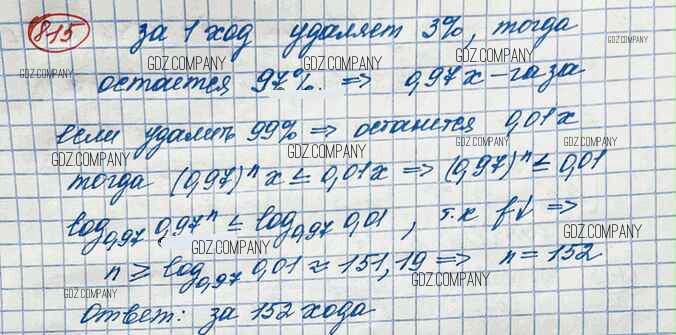 815 за 1 ход удаляет 3%, тогда
GDZ.COMPANY GDZ.COMPANY GDZ.COMPANY
GDZ.COMPANY GDZ.COMPANY
остается 97%. => 0,97x - газа
GDZ.COMPANY GDZ.COMPANY
если удалить 99% => останется 0,01x
GDZ.COMPANY GDZ.COMPANY GDZ.COMPANY GDZ.COMPANY
тогда (0,97)ⁿ x ≤ 0,01x => (0,97)ⁿ ≤ 0,01
GDZ.COMPANY
log₀,₉₇ 0,97ⁿ ≤ log₀,₉₇ 0,01, т.к f↓ =>
GDZ.COMPANY GDZ.COMPANY
n ≥ log₀,₉₇ 0,01 ≈ 151,19 => n = 152
GDZ.COMPANY GDZ.COMPANY
Ответ: за 152 хода